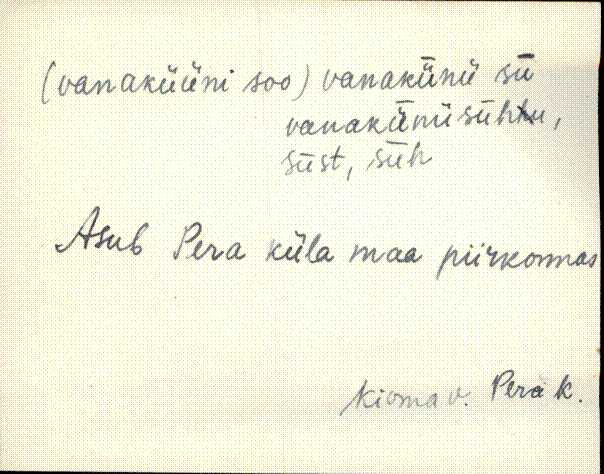 (vanaküüni soo) vanakünü sü
vanakünü sühhu,
süst, süh
Asub Pera küla maa piirkonnas
Kioma v. Pera k.